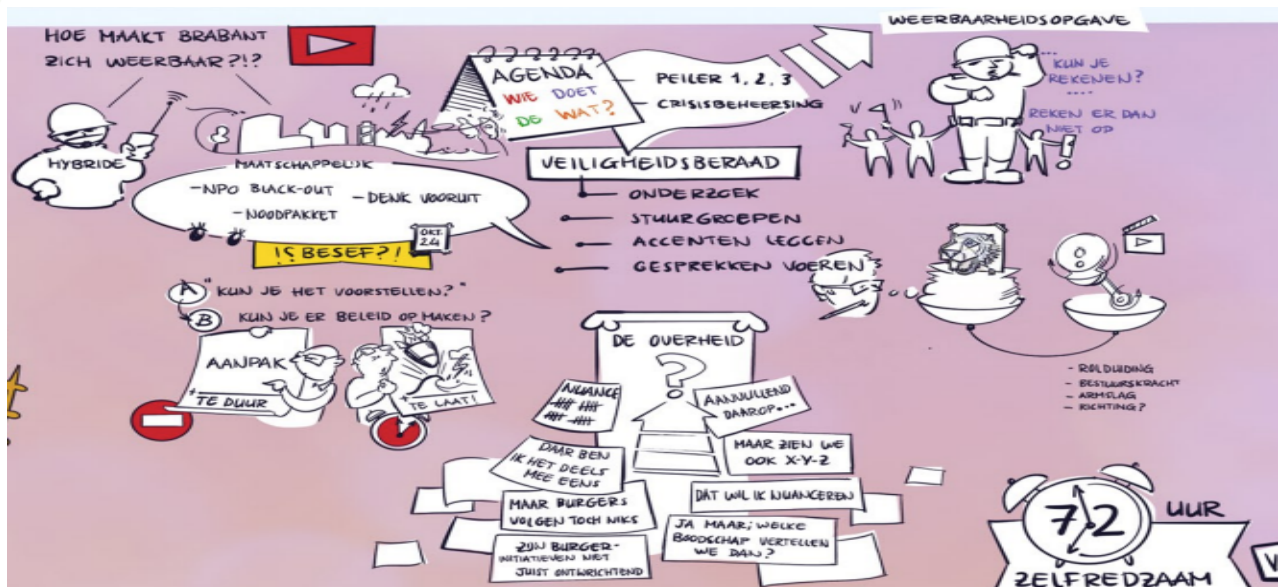 HOE MAAKT BRABANT
ZICH WEERBAAR?!?
HYBRIDE
MAATSCHAPPELIJK
-NPO BLACK-OUT
-DENK VOORUIT
-NOODPAKKET
OKT.
24
!? BESEF?!
A "KUN JE HET VOORSTELLEN?"
B KUN JE ER BELEID OP MAKEN?
AANPAK
+
TE DUUR
+
TE LAAT!
AGENDA
WIE DOET
DE WAT?
PEILER 1, 2, 3
CRISISBEHEERSING
VEILIGHEIDSBERAAD
ONDERZOEK
STUURGROEPEN
ACCENTEN LEGGEN
GESPREKKEN VOEREN
WEERBAARHEIDSOPGAVE
....
KUN JE
REKENEN?
....
REKEN ER DAN
NIET OP
!
- ROLDUIDING
- BESTUURSKRACHT
- ARMSLAG
- RICHTING?
DE OVERHEID
?
NUANCE
AANVULLEND
DAAROP...
DAAR BEN
IK HET DEELS
MEE EENS
MAAR ZIEN WE
OOK X-Y-Z
MAAR BURGERS
VOLGEN TOCH NIKS
DÁT WIL IK NUANCEREN
ZIJN BURGER-
INITIATIEVEN NIET
JUIST ONTWRICHTEND
JA MAAR; WELKE
BOODSCHAP VERTELLEN
WE DAN?
72 UUR
ZELFREDZAAM